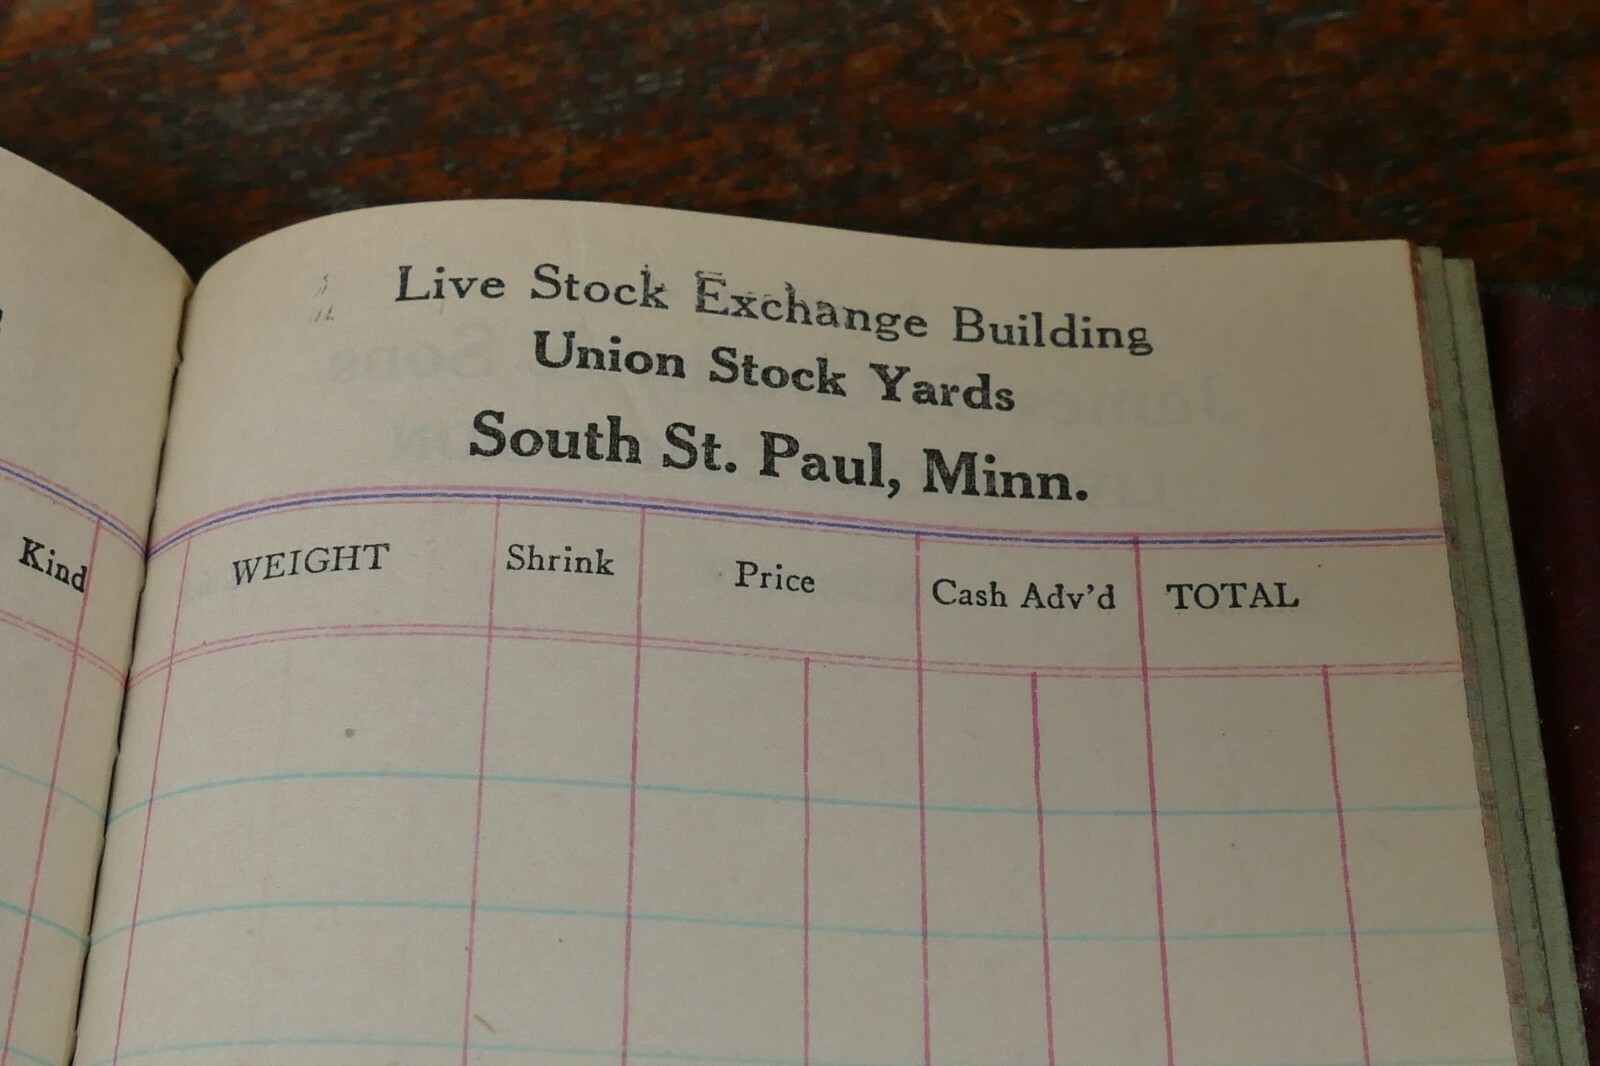 Live Stock Exchange Building
Union Stock Yards
South St. Paul, Minn.
Kind
WEIGHT Shrink Price Cash Adv'd TOTAL